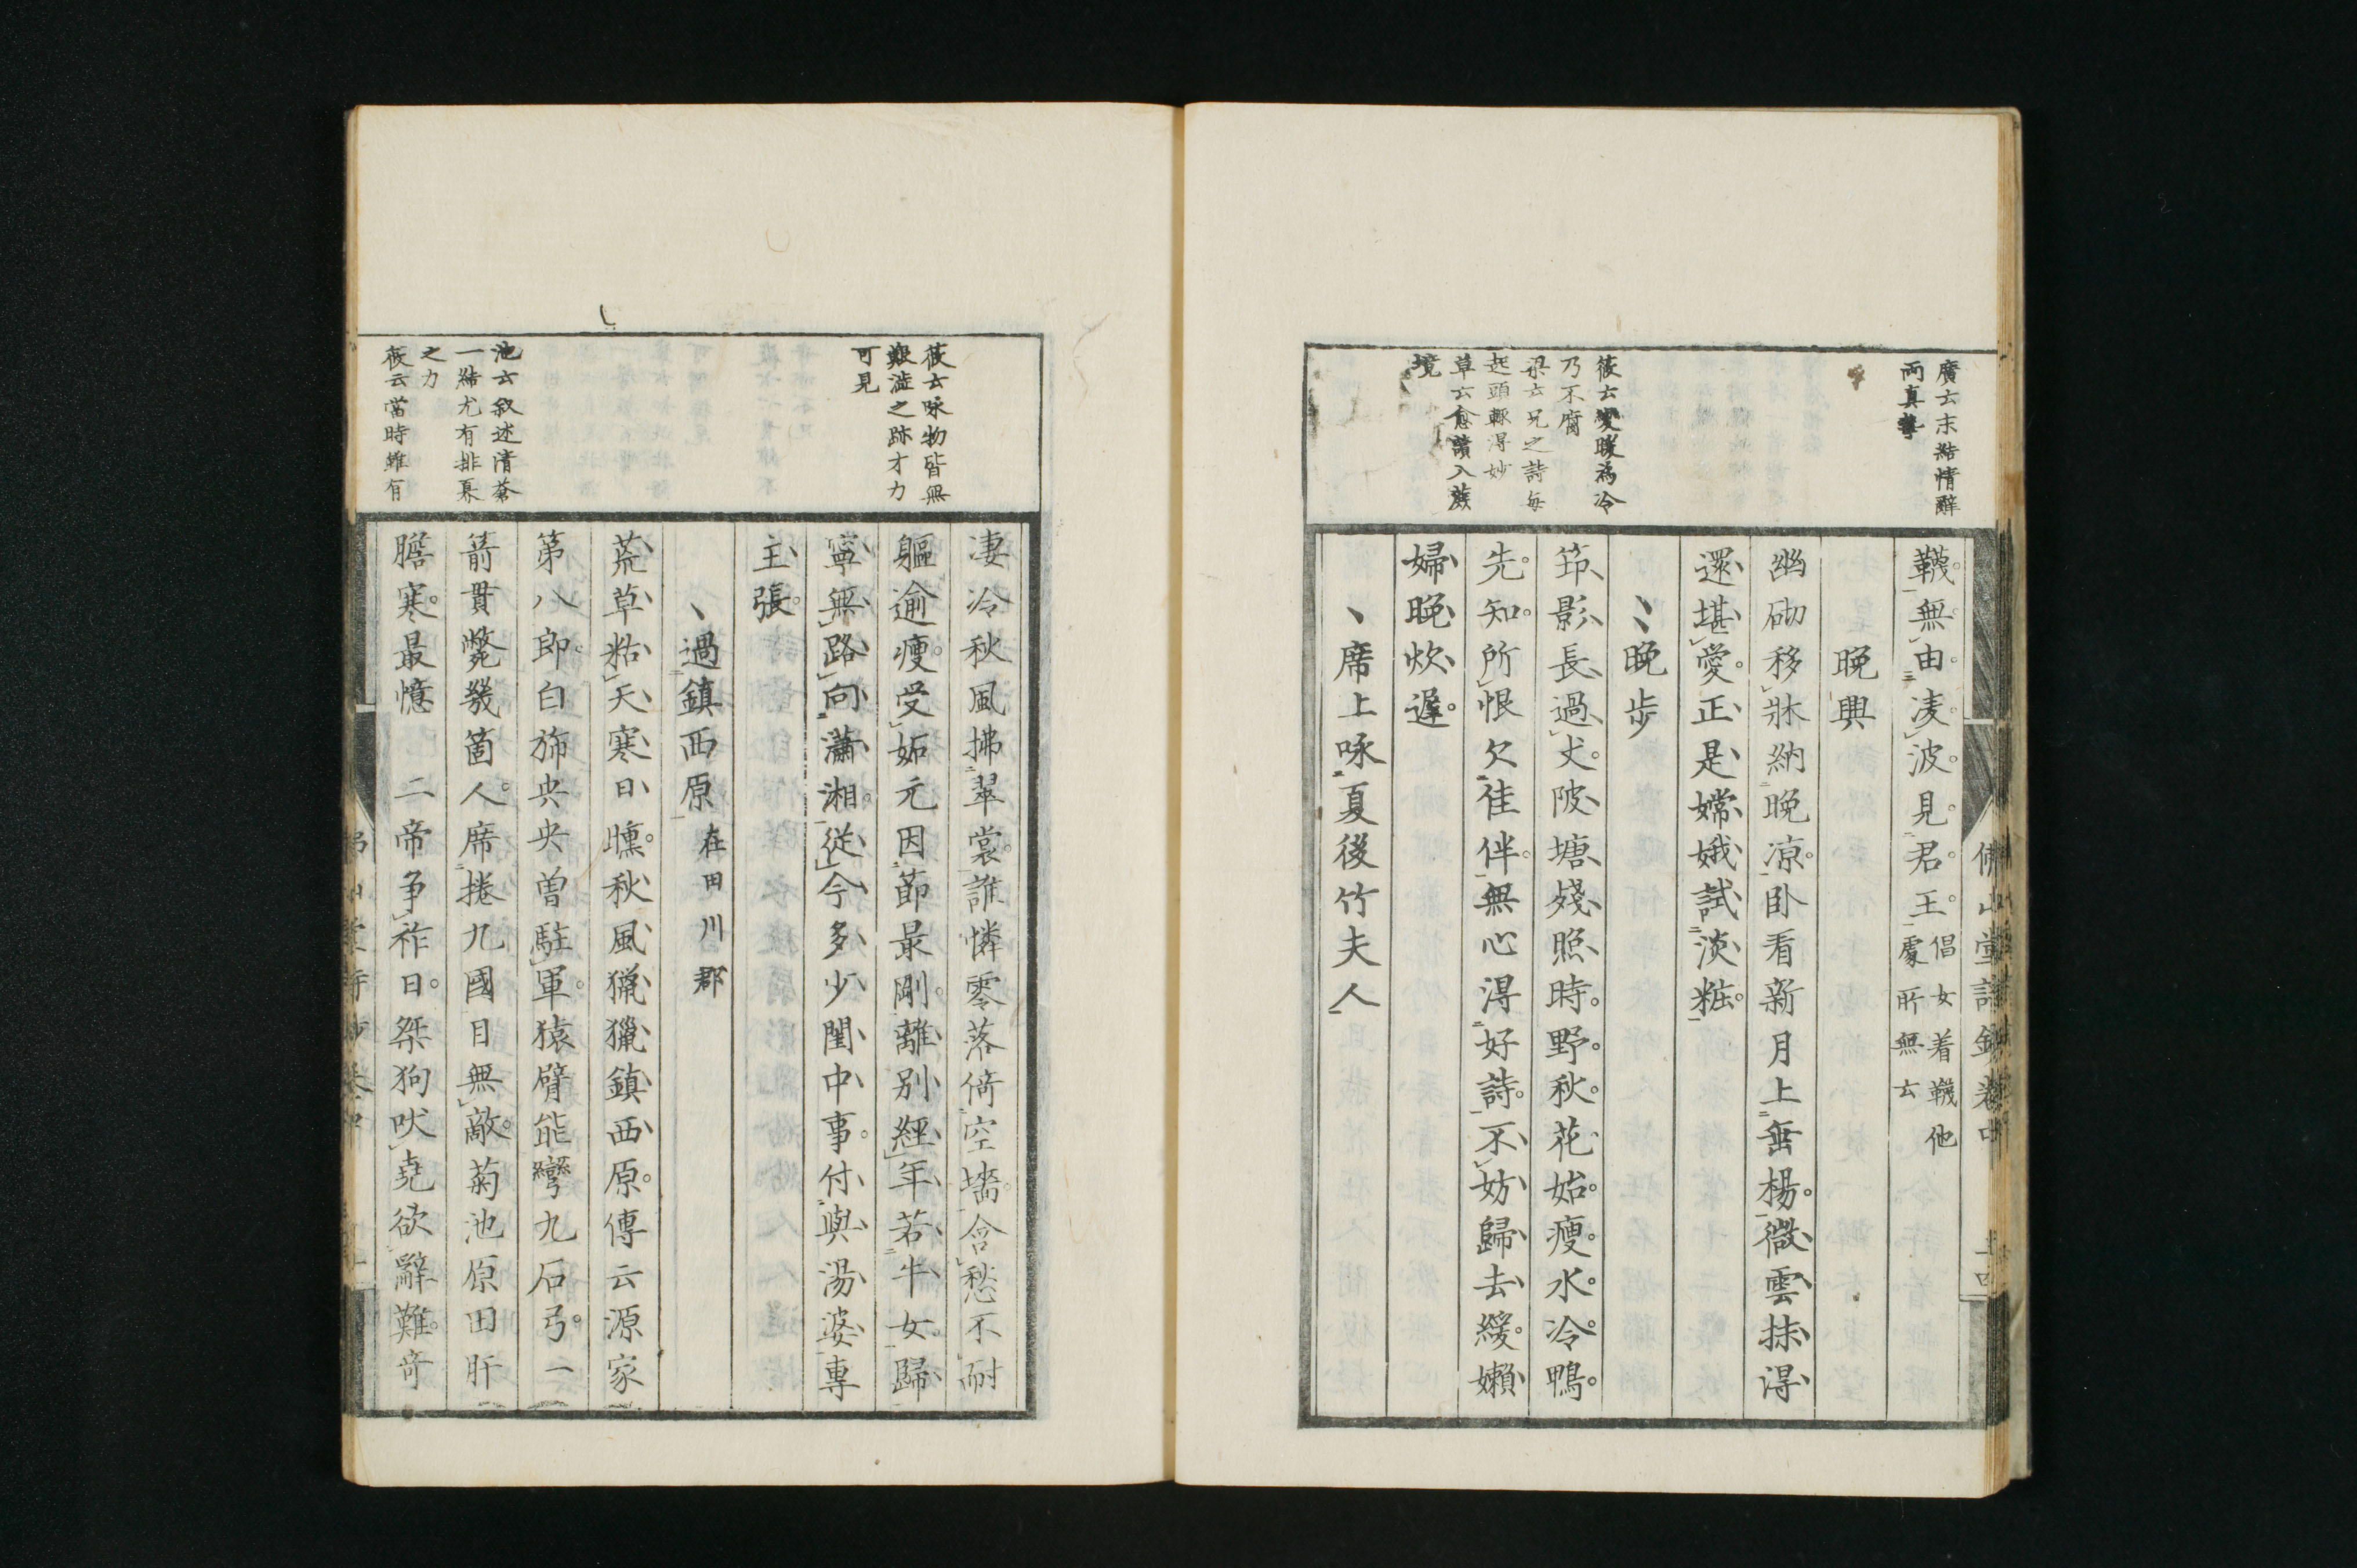 廣云末結情辭
両真摯
筱云變暖為冷
乃不腐
梁云兄之詩每
起頭輙得妙
草云愈讀入蔗
境
韈無由凌波見君王倡女着韈他
處所無云
晩興
幽砌移牀納晩凉臥看新月上垂楊微雲抹得
還堪愛正是嫦娥試淡粧
晩歩
筇影長過丈陂塘殘照時野秋花始瘦水冷鴨
先知所恨欠佳伴無心得好詩不妨歸去緩嬾
婦晩炊遲
席上咏夏後竹夫人
筱云咏物皆無
艱澁之跡才力
可見
池云叙述清蒼
一結尤有排奡
之力
筱云當時雖有
凄冷秋風拂翠裳誰憐零落倚空墻含愁不耐
軀逾瘦受妬元因節最剛離別經年若牛女歸
寧無路向瀟湘從今多少閨中事付與湯婆專
主張
過鎮西原在田川郡
荒草粘天寒日曛秋風獵獵鎮西原傳云源家
第八郎白斾央央曽駐軍猿臂能彎九石弓一
箭貫斃幾箇人席捲九國目無敵菊池原田肝
膽寒最憶　二帝爭祚日桀狗吠堯欲辭難奇